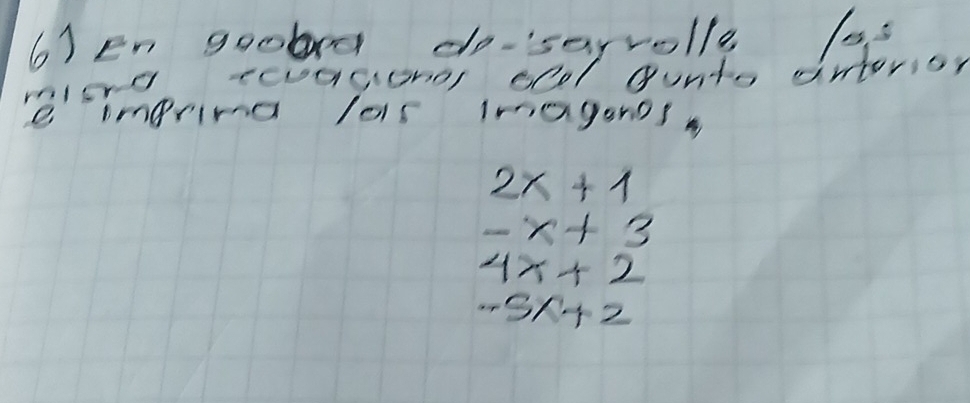 6) En goobra de-sarrolle las
misma ecuaciones del punto anterior
e imprima las imagenes.
2x + 1
-x + 3
4x + 2
-5x + 2